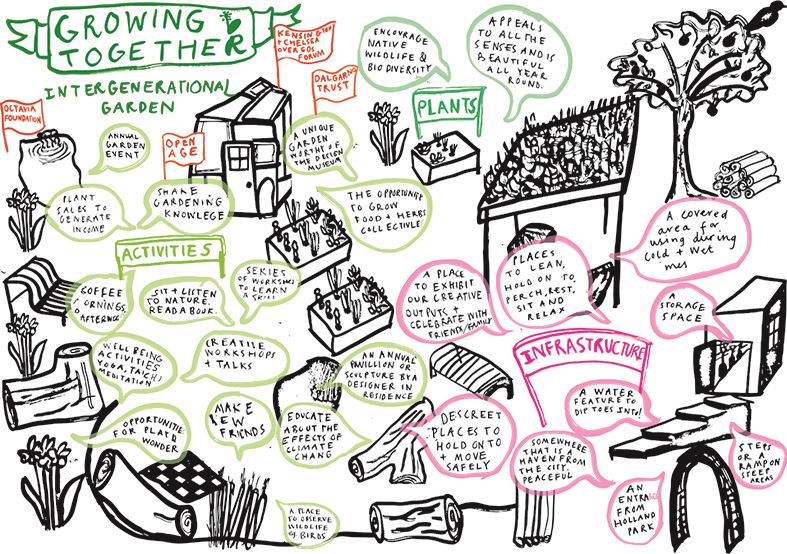 GROWING
TOGETHER
INTERGENERATIONAL
GARDEN
OCTAVIA
FOUNDATION
OPEN
AGE
KENSINGTON
+ CHELSEA
OVER 50S
FORUM
DALGARNO
TRUST
ANNUAL
GARDEN
EVENT
PLANT
SALES TO
GENERATE
INCOME
SHARE
GARDENING
KNOWLEGE
A UNIQUE
GARDEN
WORTHY OF
THE DESIGN
MUSEUM
THE OPPORTUNITY
TO GROW
FOOD + HERBS
COLLECTIVELY
ENCOURAGE
NATIVE
WILDLIFE &
BIO DIVERSITY
APPEALS
TO ALL THE
SENSES AND IS
BEAUTIFUL
ALL YEAR
ROUND.
PLANTS
ACTIVITIES
COFFEE
MORNINGS,
AFTERNOONS
SIT + LISTEN
TO NATURE.
READ A BOOK.
SERIES
OF WORKSHOPS
TO LEARN
A SKILL
WELL BEING
ACTIVITIES
YOGA, TAICHI
MEDITATION
CREATIVE
WORKSHOPS
+ TALKS
AN ANNUAL
PAVILLION OR
SCULPTURE BY A
DESIGNER IN
RESIDENCE
OPPORTUNITIES
FOR PLAY &
WONDER
MAKE
NEW
FRIENDS
EDUCATE
ABOUT THE
EFFECTS OF
CLIMATE
CHANGE
A PLACE
TO OBSERVE
WILDLIFE
& BIRDS
A PLACE
TO EXHIBIT
OUR CREATIVE
OUTPUTS +
CELEBRATE WITH
FRIENDS/FAMILY
PLACES
TO LEAN,
HOLD ON TO
PERCH, REST,
SIT AND
RELAX
A covered
area for
using during
cold + wet
INFRASTRUCTURE
A
STORAGE
SPACE
DESCREET
PLACES TO
HOLD ONTO
+ MOVE
SAFELY
A WATER
FEATURE TO
DIP TOES INTO!
SOMEWHERE
THAT IS A
HAVEN FROM
THE CITY.
PEACEFUL
STEPS
OR A
RAMP ON
STEEP
AREAS
AN
ENTRANCE
FROM
HOLLAND
PARK